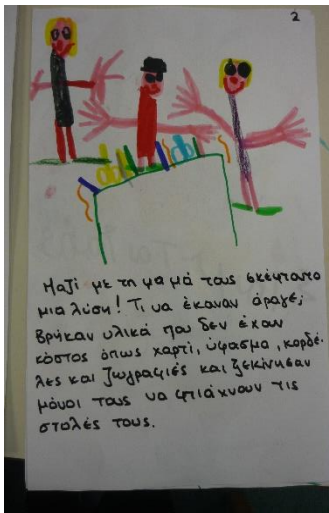 2
Μαζί με τη μαμά τους σκέφτονται
μια λύση! Τι να έκαναν άραγε;
Βρήκαν υλικά που δεν έχουν
κόστος όπως χαρτί, ύφασμα, κορδέ-
λες και ζωγραφιές και ξεκίνησαν
μόνοι τους να φτιάχνουν τις
στολές τους.